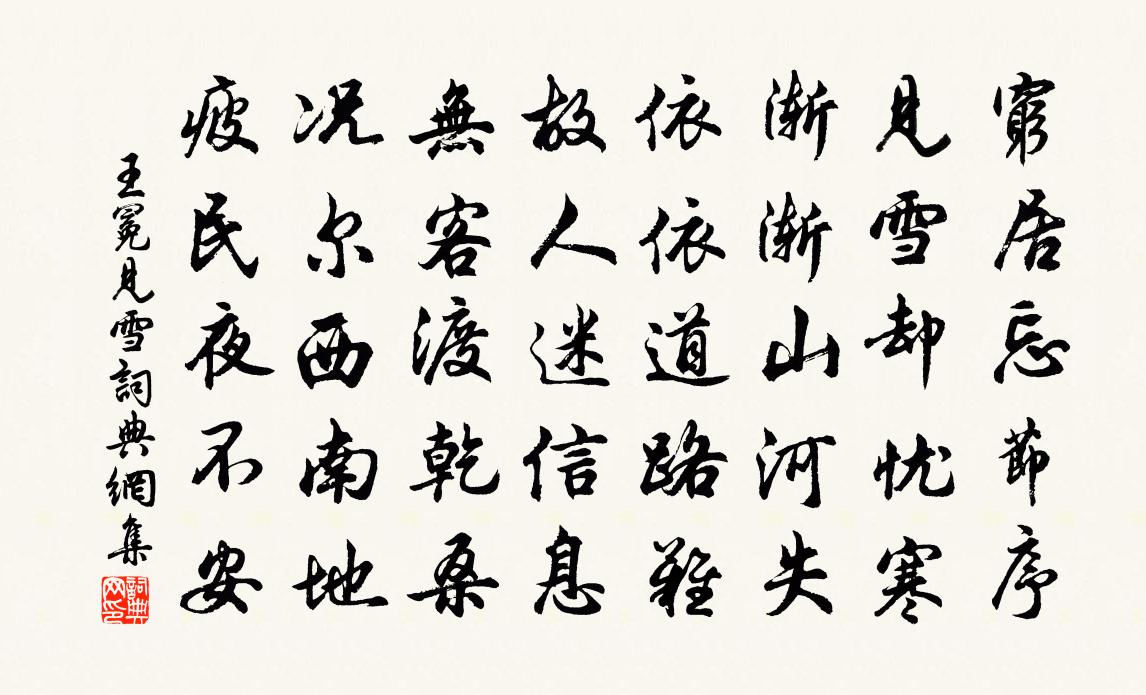 窮居忘節序
見雪却忧寒
漸漸山河失
依依道路難
故人迷信息
無客渡乾桑
况尔西南地
疲民夜不安
王冕見雪詞典網集
詞典網印